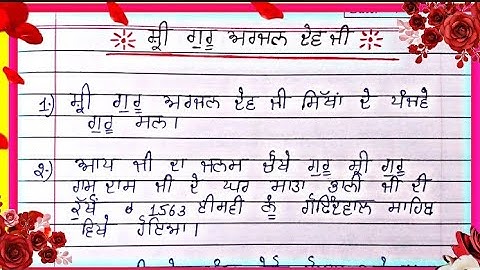 ਸ੍ਰੀ ਗੁਰੂ ਅਰਜਨ ਦੇਵ ਜੀ
1) ਸ੍ਰੀ ਗੁਰੂ ਅਰਜਨ ਦੇਵ ਜੀ ਸਿੱਖਾਂ ਦੇ ਪੰਜਵੇ
ਗੁਰੂ ਸਨ।
2) ਆਪ ਜੀ ਦਾ ਜਨਮ ਚੌਥੇ ਗੁਰੂ ਸ੍ਰੀ ਗੁਰੂ
ਰਾਮ ਦਾਸ ਜੀ ਦੇ ਘਰ ਮਾਤਾ ਭਾਨੀ ਜੀ ਦੀ
ਕੁੱਖੋਂ 1563 ਈਸਵੀ ਨੂੰ ਗੋਇੰਦਵਾਲ ਸਾਹਿਬ
ਵਿਖੇ ਹੋਇਆ।